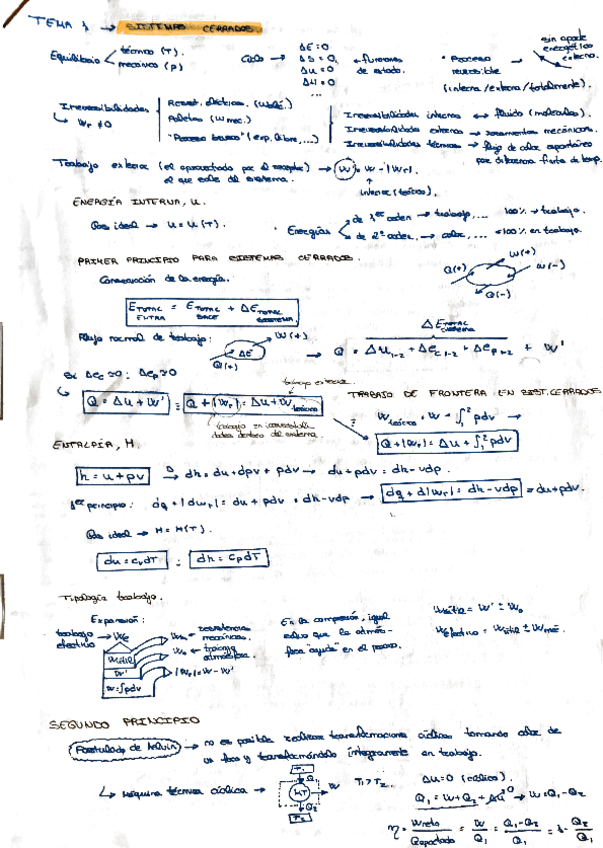 TEMA 1 → SISTEMAS CERRADOS.
Equilibrio < térmico (T). mecánico (p)
Ciclo → ΔE=0 ΔS=0, Δu=0 ΔH=0 ... ← funciones de estado.
* Proceso reversible (interna/externa/totalmente). sin aporte energético externo.
Irreversibilidades → Wr ≠ 0
Resist. eléctricas. (Welé.)
Paletas (Wmec.)
"Proceso brusco" (exp. libre,...)
Irreversibilidades internas ↔ fluido (moléculas).
Irreversibilidades externas → rozamientos mecánicos.
Irreversibilidades térmicas → flujo de calor espontáneo por diferencia finita de temp.
Trabajo exterior (el aprovechado por el receptor) → W' = W - |Wr|.
el que sale del sistema.
interior (teórico).
ENERGÍA INTERNA, U.
Gas ideal → u = u(T).
· Energías < de 1er orden → trabajo,... 100% → trabajo.
de 2º orden → calor,... <100% en trabajo.
PRIMER PRINCIPIO PARA SISTEMAS CERRADOS.
Conservación de la energía.
Q(+) W(+) W(-) Q(-)
E TOTAL ENTRA = E TOTAL SALE + ΔE TOTAL SISTEMA
Flujo normal de trabajo: Q(+) ΔE W(+)
ΔE TOTAL SISTEMA
→ Q = Δu1-2 + Δec1-2 + Δep1-2 + W'
Si Δec≈0; Δep≈0
trabajo exterior.
Q = Δu + W' ; Q + |Wr| = Δu + W teórico
trabajo en irreversibilidades dentro del sistema.
TRABAJO DE FRONTERA EN SIST. CERRADOS
W teórico = W = ∫₁² pdv →
Q + |Wr| = Δu + ∫₁² pdv
ENTALPÍA, H.
h = u + pv → dh = du + dpv + pdv → du + pdv = dh - vdp.
1er principio: dq + |dwr| = du + pdv = dh - vdp → dq + d|Wr| = dh - vdp = du + pdv.
Gas ideal → H = H(T).
du = cv dT ; dh = cp dT
Tipología trabajo.
Expansión:
trabajo efectivo → We
Wm → resistencias mecánicas.
Wo → trabajo atmósfera.
Wútil
W'
|Wr| = W - W'
W = ∫pdv
En la compresión, igual salvo que la atmósfera "ayuda" en el proceso.
Wútil = W' ± Wo
Wefectivo = Wútil ± Wmec.
SEGUNDO PRINCIPIO
Postulado de Kelvin → no es posible realizar transformaciones cíclicas tomando calor de
un foco y transformándolo íntegramente en trabajo.
↳ Máquina térmica cíclica →
T1 Q1 MT W Q2 T2
T1 > T2
Δu=0 (cíclico).
Q1 = W + Q2 + Δu⁰ → W = Q1 - Q2
η = Wneto / Qaportado = W / Q1 = Q1-Q2 / Q1 = 1 - Q2 / Q1